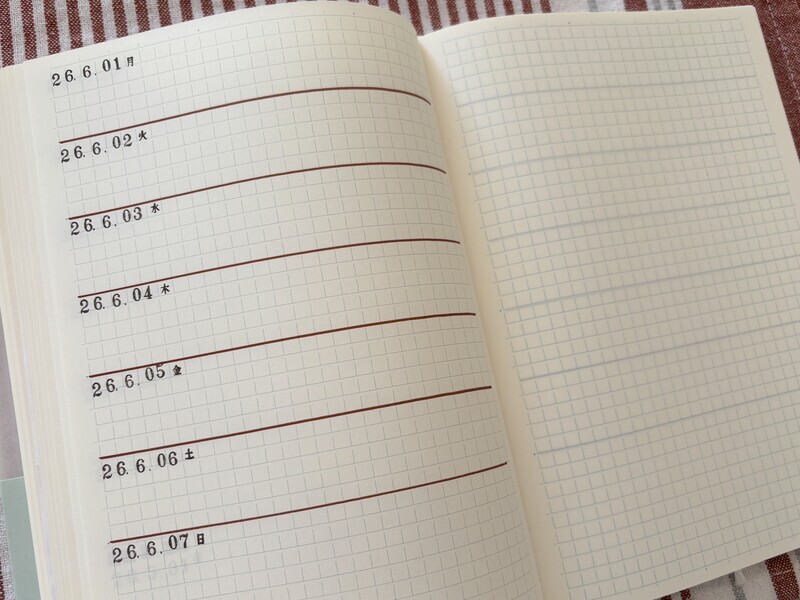 26.6.01 月
26.6.02 火
26.6.03 水
26.6.04 木
26.6.05 金
26.6.06 土
26.6.07 日